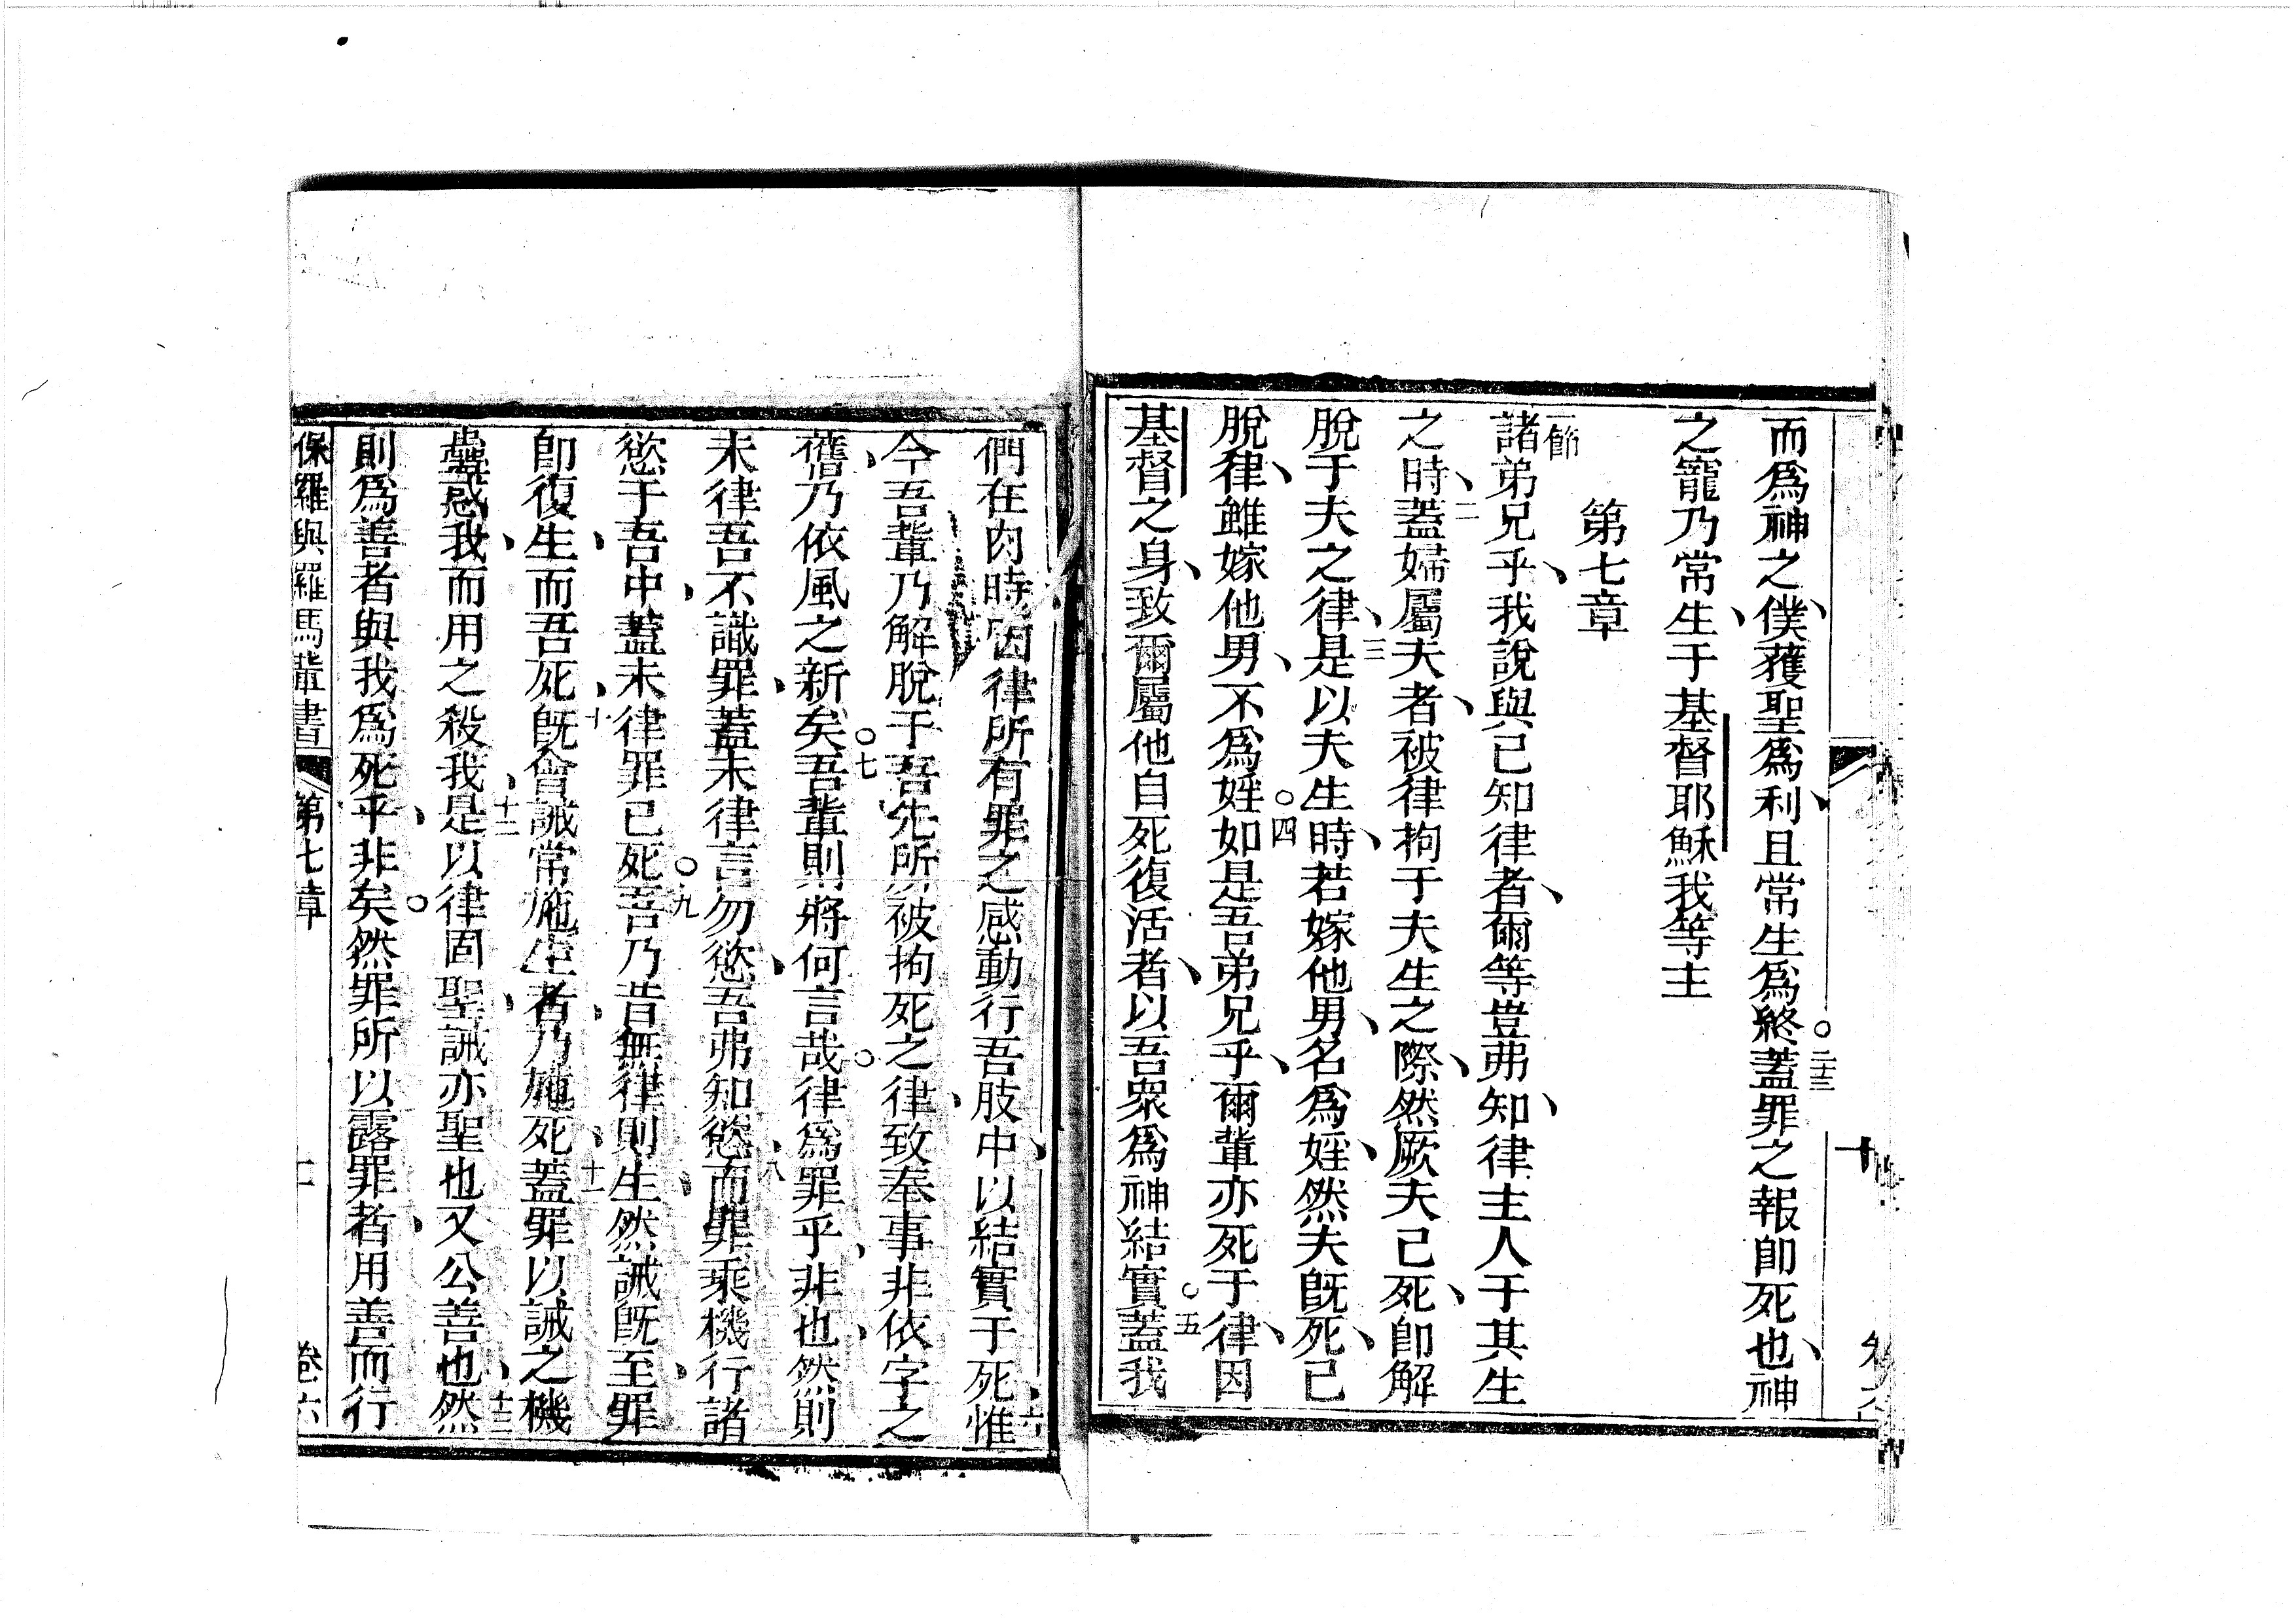 而爲神之僕、獲聖爲利、且常生爲終。二十三蓋罪之報卽死也、神
之寵乃常生、于基督耶穌我等主
第七章
一節諸弟兄乎、我說與已知律者、爾等豈弗知、律主人于其生
之時、二蓋婦屬夫者、被律拘于夫生之際、然厥夫已死、卽解
脫于夫之律、三是以夫生時、若嫁他男、名爲婬、然夫旣死、已
脫律、雖嫁他男、不爲婬。四如是吾弟兄乎、爾輩亦死于律、因
基督之身、致爾屬他自死復活者、以吾衆爲神結實。五蓋我
們在肉時、因律所有罪之感動行吾肢中、以結實于死、六惟
今吾輩乃解脫于吾先所被拘死之律、致奉事非依字之
舊、乃依風之新矣。七吾輩則將何言哉。律爲罪乎、非也、然則
未律吾不識罪、蓋未律言勿慾、吾弗知慾、八而罪乘機行諸
慾于吾中、蓋未律罪已死。九吾乃昔無律則生、然誡旣至、罪
卽復生、而吾死、十旣會誡常施生者、乃施死、十一蓋罪以誡之機
蠱惑我、而用之殺我、十二是以律固聖、誡亦聖也又公善也、十三然
則爲善者與我爲死乎、非矣。然罪所以露罪者、用善而行
保羅與羅馬輩書 第七章 卷六